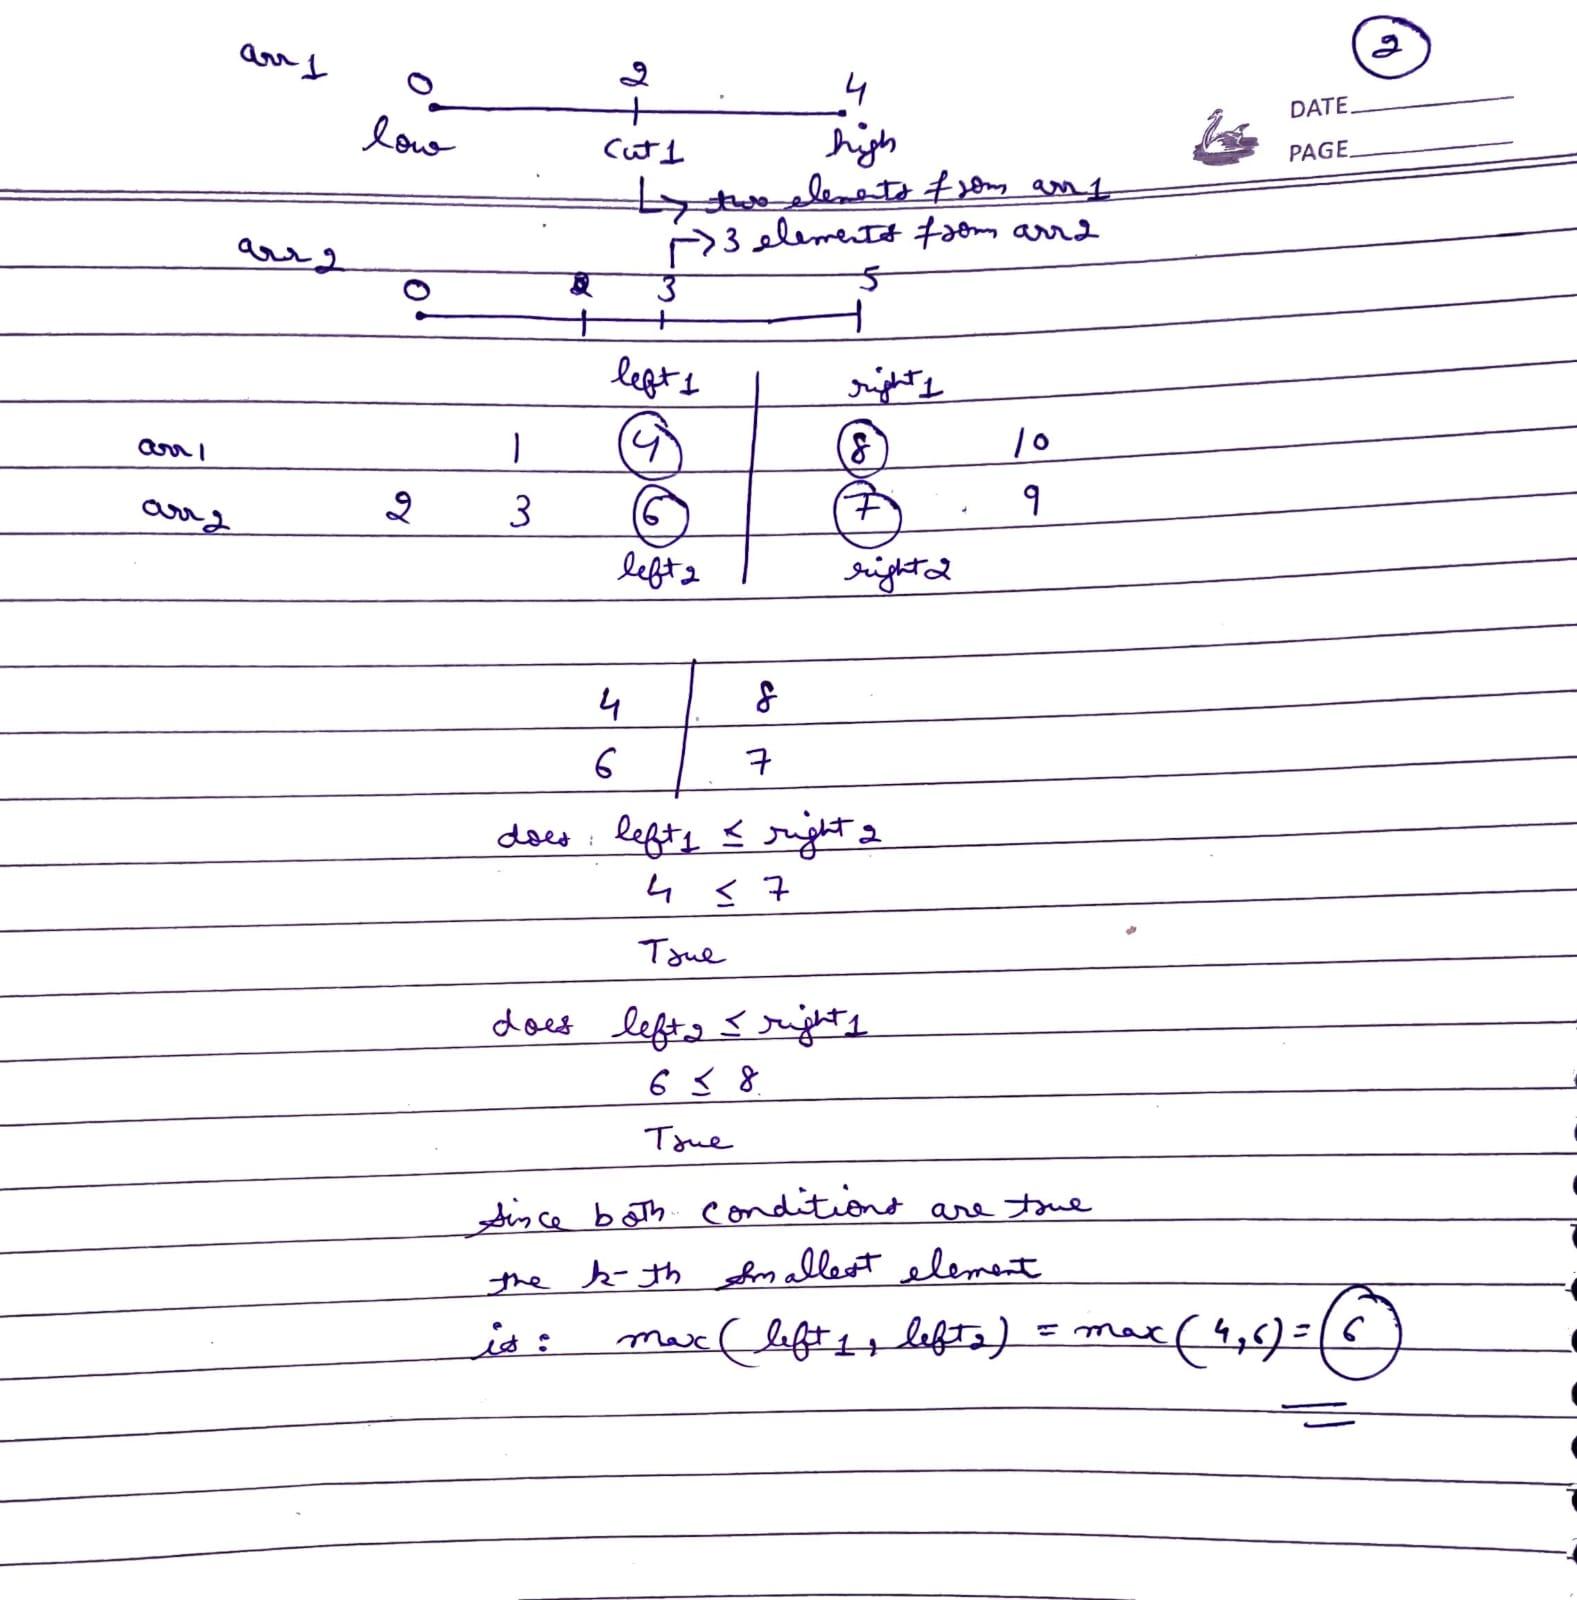 2
DATE
PAGE
arr 1
0 2 4
low cut 1 high
↳ two elements from arr 1
↱ 3 elements from arr 2
arr 2
0 3 5
left 1 right 1
arr 1 1 4 8 10
arr 2 2 3 6 7 9
left 2 right 2
4 8
6 7
does left 1 ≤ right 2
4 ≤ 7
True
does left 2 ≤ right 1
6 ≤ 8
True
since both conditions are true
the k-th smallest element
is: max(left 1, left 2) = max(4,6) = 6